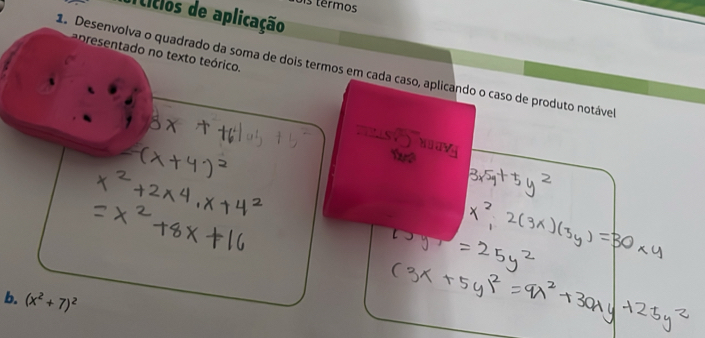 is termos
de aplicação
1. Desenvolva o quadrado da soma de dois termos em cada caso, aplicando o caso de produto notável
apresentado no texto teórico.
(x+4)²
x² + 2x4.x + 4²
= x² + 8x + 16
FABER-CASTELL
3x5y + 5y²
x²; 2(3x)(5y) = 30xy
= 25y²
(3x + 5y)² = 9x² + 30xy + 25y²
b. (x² + 7)²